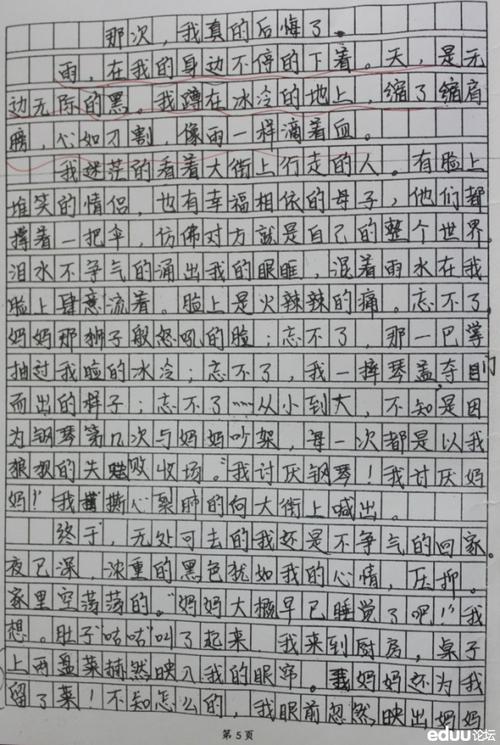 那次，我真的后悔了。
雨，在我的身边不停的下着。天，是无
边无际的黑。我蹲在冰冷的地上，缩了缩肩
膀，心如刀割，像雨一样滴着血。
我迷茫的看着大街上行走的人。有脸上
堆笑的情侣，也有幸福相依的母子，他们都
撑着一把伞，仿佛对方就是自己的整个世界。
泪水不争气的涌出我的眼眶，混着雨水在我
脸上肆意流着。脸上是火辣辣的痛。忘不了，
妈妈那狮子般怒吼的脸；忘不了，那一巴掌
抽过我脸的冰冷；忘不了，我一摔琴盖，夺门
而出的样子；忘不了……从小到大，不知是因
为钢琴第几次与妈妈吵架，每一次都是以我
狼狈的失败收场。“我讨厌钢琴！我讨厌妈
妈！”我撕心裂肺的向大街上喊出。
终于，无处可去的我还是不争气的回家。
夜已深，浓重的黑色犹如我的心情，压抑。
家里空荡荡的。“妈妈大概早已睡觉了吧！”我
想。肚子“咕咕”叫了起来，我来到厨房，桌子
上两盘菜赫然映入我的眼帘。妈妈还为我
留了菜！不知怎么的，我眼前忽然映出妈妈
第 5 页
eduu论坛